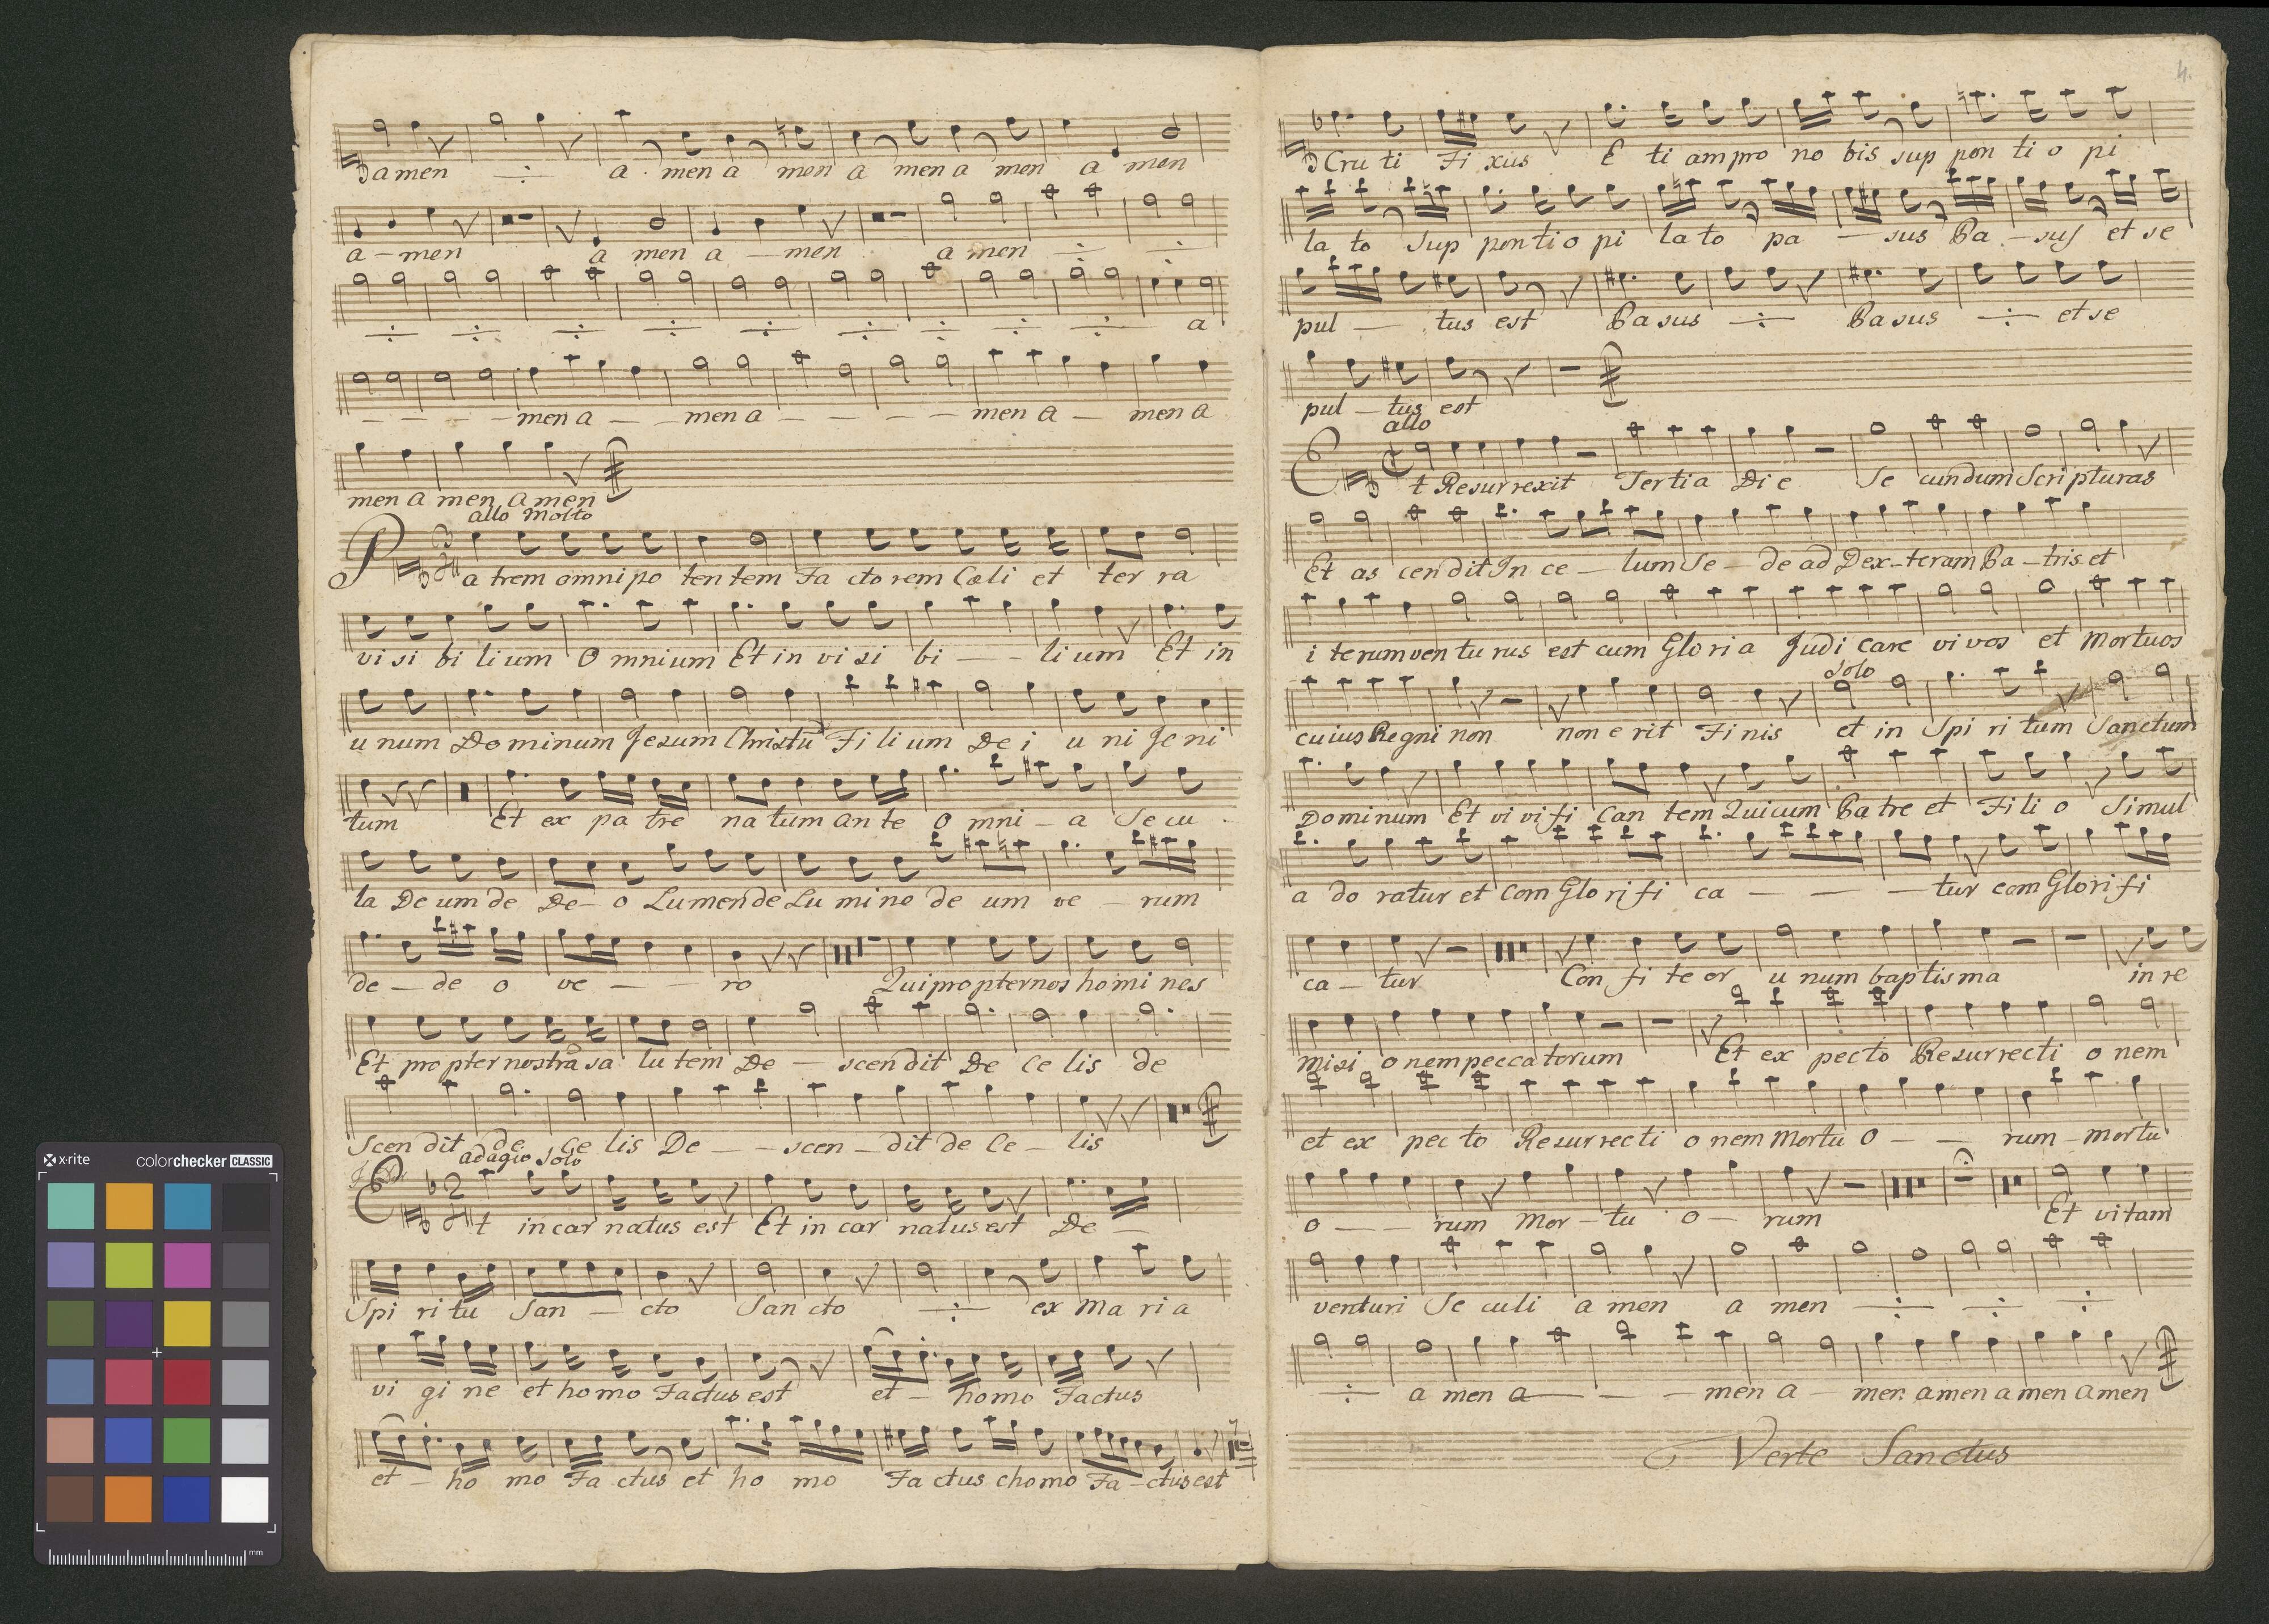 amen ÷ a. men a men a men a men a men
a - men a men a - men a men ÷ ÷
÷ ÷ ÷ ÷ ÷ ÷ ÷ ÷ ÷ a
- - - - men a - - men a - - - - men a - men a
men a men amen
allo Molto
Patrem omnipo tentem Facto rem Cœli et ter ra
vi si bi lium Omnium Et in vi si bi - - li um Et in
u num Dominum Jesum Christū Fi li um De i u ni Je ni
tum Et ex pa tre na tum an te o mni - a Se cu
la De um de De - o Lumen de Lu mi no de um ve - rum
de - de o ve - - ro Qui propter nos homi nes
Et propter nostrã sa lu tem De - scendit De Ce lis de
Scen dit de Ce lis De - - scen - dit de Ce - lis
adagio solo
Et in car natus est Et in car natus est De -
Spi ri tu San - cto San cto ÷ ex Ma ri a
vi gi ne et homo Factus est et - homo Factus
et - ho mo Fa ctus et ho mo Fa ctus chomo Fa - ctus est
4.
Cru ti Fi xus E ti am pro no bis sup pon ti o pi
la to Sup pon ti o pi la to pa - sus Pa - sus et se
pul - tus est Pasus ÷ Pasus ÷ et se
pul - tus est
allo
Et Resurrexit Tertia Die Se cundum Scripturas
Et as cendit In ce - lum Se - de ad Dex - teram Pa - tris et
i terum ven tu rus est cum Glo ri a Judi care vi vos et Mortuos
solo
cuius Regni non non e rit Fi nis et in Spi ri tum Sanctum
Dominum Et vi vi fi Can tem Qui cum Patre et Fi li o Simul
a do ratur et Com Glo ri fi ca - - - tur com Glori fi
ca - tur Con fi te or u num baptis ma in re
misi o nem peccatorum Et ex pecto Resurrecti o nem
et ex pec to Resurrecti o nem Mortu o - - rum - mortu
o - - - rum Mor - tu o - rum Et vitam
venturi Se culi a men a men ÷ ÷ ÷
÷ a men a - - - men a - men amen amen amen
Verte Sanctus
x-rite
colorchecker CLASSIC
mm